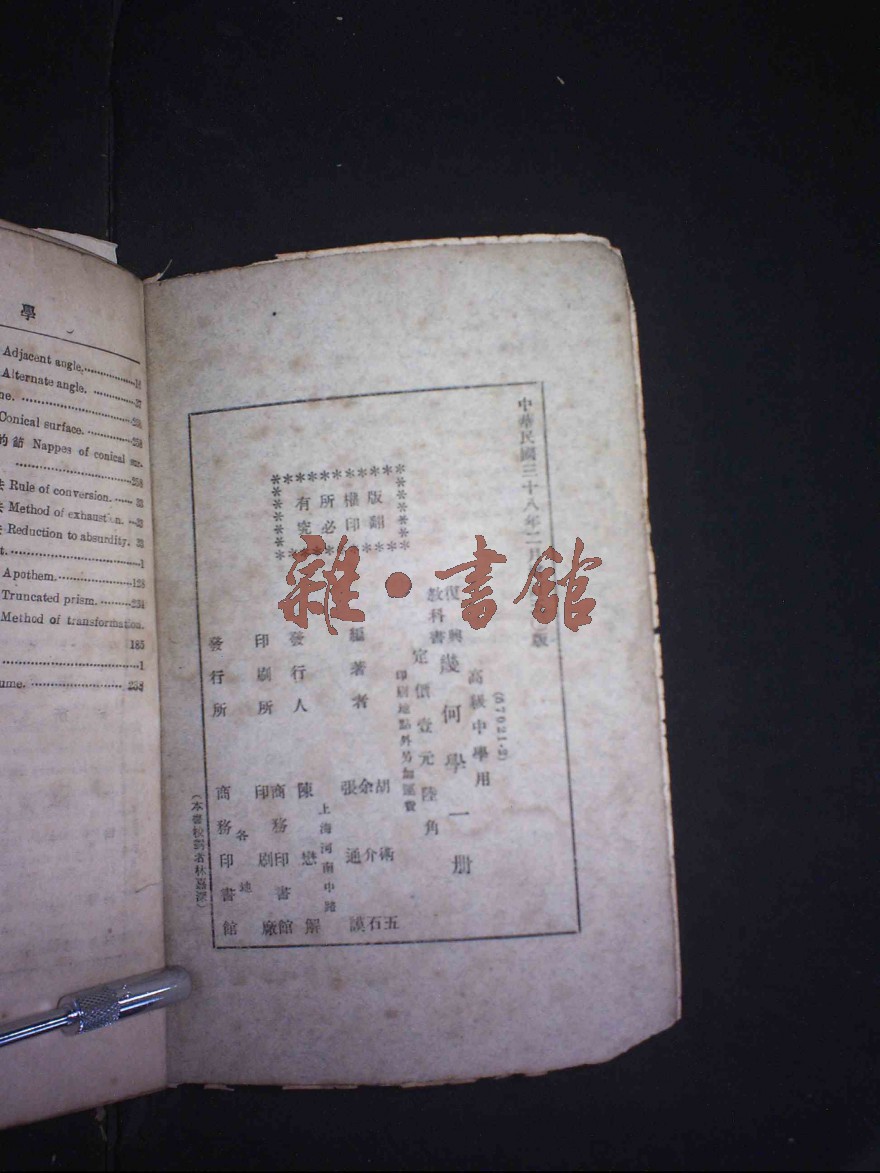 學
Adjacent angle.
Alternate angle.
Conical surface.
Nappes of conical
Rule of conversion.
Method of exhaustion.
Reduction to absurdity.
Apothem.
Truncated prism.
Method of transformation.
185
1
雜·書館
中華民國三十八年二月
版
(67021-2)
高級中學用
復興教科書 幾何學 一册
定價壹元陸角
印刷地點外另加運費
版權所有
翻印必究
編著者 胡術五 余介石 張通謨
發行人 陳懋解
上海河南中路
印刷所 商務印書館 印刷廠
發行所 各地 商務印書館